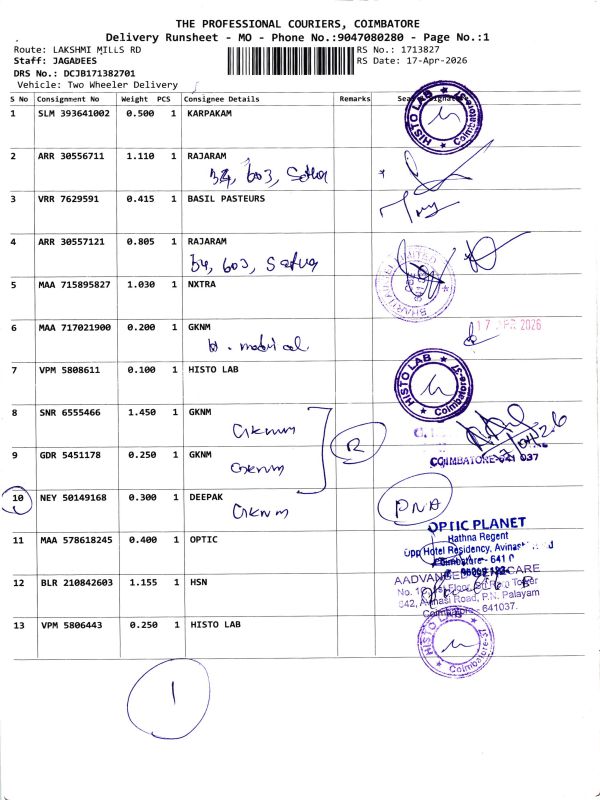 THE PROFESSIONAL COURIERS, COIMBATORE
Delivery Runsheet - MO - Phone No.:9047080280 - Page No.:1
Route: LAKSHMI MILLS RD
RS No.: 1713827
Staff: JAGADEES
RS Date: 17-Apr-2026
DRS No.: DCJB171382701
Vehicle: Two Wheeler Delivery
S No Consignment No Weight PCS Consignee Details Remarks
1 SLM 393641002 0.500 1 KARPAKAM
HISTO LAB Coimbatore-37
2 ARR 30556711 1.110 1 RAJARAM
603,
3 VRR 7629591 0.415 1 BASIL PASTEURS
4 ARR 30557121 0.805 1 RAJARAM
603,
5 MAA 715895827 1.030 1 NXTRA
6 MAA 717021900 0.200 1 GKNM
17 APR 2026
7 VPM 5808611 0.100 1 HISTO LAB
HISTO LAB Coimbatore-37
8 SNR 6555466 1.450 1 GKNM
Gknm
9 GDR 5451178 0.250 1 GKNM
Gknm
R
COIMBATORE-641 037
10 NEY 50149168 0.300 1 DEEPAK
Gknm
PNA
OPTIC PLANET
11 MAA 578618245 0.400 1 OPTIC
Rathna Regent
Opp Hotel Residency,
Coimbatore - 641
12 BLR 210842603 1.155 1 HSN
Tower
642, Avinasi Road, P.N. Palayam
Coimbatore - 641037.
13 VPM 5806443 0.250 1 HISTO LAB
HISTO LAB Coimbatore-37
1